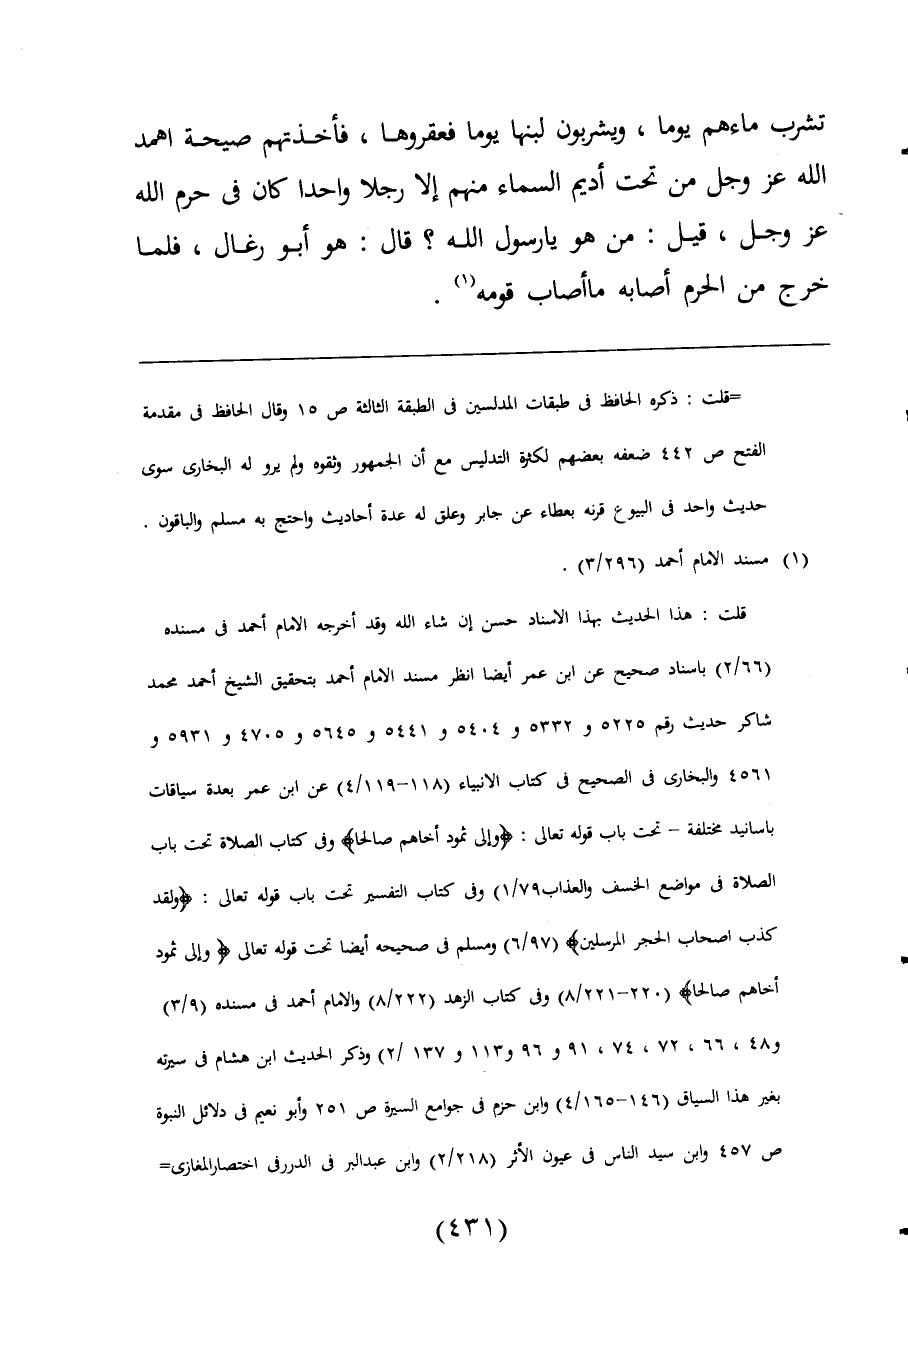 تشرب ماءهم يوما ، ويشربون لبنها يوما فعقروها ، فأخذتهم صيحة اهمد
الله عز وجل من تحت أديم السماء منهم إلا رجلا واحدا كان فى حرم الله
عز وجل ، قيل : من هو يارسول الله ؟ قال : هو أبو رغال ، فلما
خرج من الحرم أصابه ماأصاب قومه(١) .
=قلت : ذكره الحافظ فى طبقات المدلسين فى الطبقة الثالثة ص ١٥ وقال الحافظ فى مقدمة
الفتح ص ٤٤٢ ضعفه بعضهم لكثرة التدليس مع أن الجمهور وثقوه ولم يرو له البخارى سوى
حديث واحد فى البيوع قرنه بعطاء عن جابر وعلق له عدة أحاديث واحتج به مسلم والباقون .
(١) مسند الامام أحمد (٣/٢٩٦) .
قلت : هذا الحديث بهذا الاسناد حسن إن شاء الله وقد أخرجه الامام أحمد فى مسنده
(٢/٦٦) باسناد صحيح عن ابن عمر أيضا انظر مسند الامام أحمد بتحقيق الشيخ أحمد محمد
شاكر حديث رقم ٥٢٢٥ و ٥٣٣٢ و ٥٤٠٤ و ٥٤٤١ و ٥٦٤٥ و ٤٧٠٥ و ٥٩٣١ و
٤٥٦١ والبخارى فى الصحيح فى كتاب الانبياء (١١٨-٤/١١٩) عن ابن عمر بعدة سياقات
باسانيد مختلفة – تحت باب قوله تعالى : ﴿وإلى ثمود أخاهم صالحا﴾ وفى كتاب الصلاة تحت باب
الصلاة فى مواضع الخسف والعذاب١/٧٩) وفى كتاب التفسير تحت باب قوله تعالى : ﴿ولقد
كذب اصحاب الحجر المرسلين﴾ (٦/٩٧) ومسلم فى صحيحه أيضا تحت قوله تعالى ﴿ وإلى ثمود
أخاهم صالحا﴾ (٢٢٠-٨/٢٢١) وفى كتاب الزهد (٨/٢٢٢) والامام أحمد فى مسنده (٣/٩)
و٤٨ ، ٦٦ ، ٧٢ ، ٧٤ ، ٩١ و ٩٦ و١١٣ و ١٣٧ /٢) وذكر الحديث ابن هشام فى سيرته
بغير هذا السياق (١٤٦-٤/١٦٥) وابن حزم فى جوامع السيرة ص ٢٥١ وأبو نعيم فى دلائل النبوة
ص ٤٥٧ وابن سيد الناس فى عيون الأثر (٢/٢١٨) وابن عبدالبر فى الدررفى اختصارالمغازى=
(٤٣١)